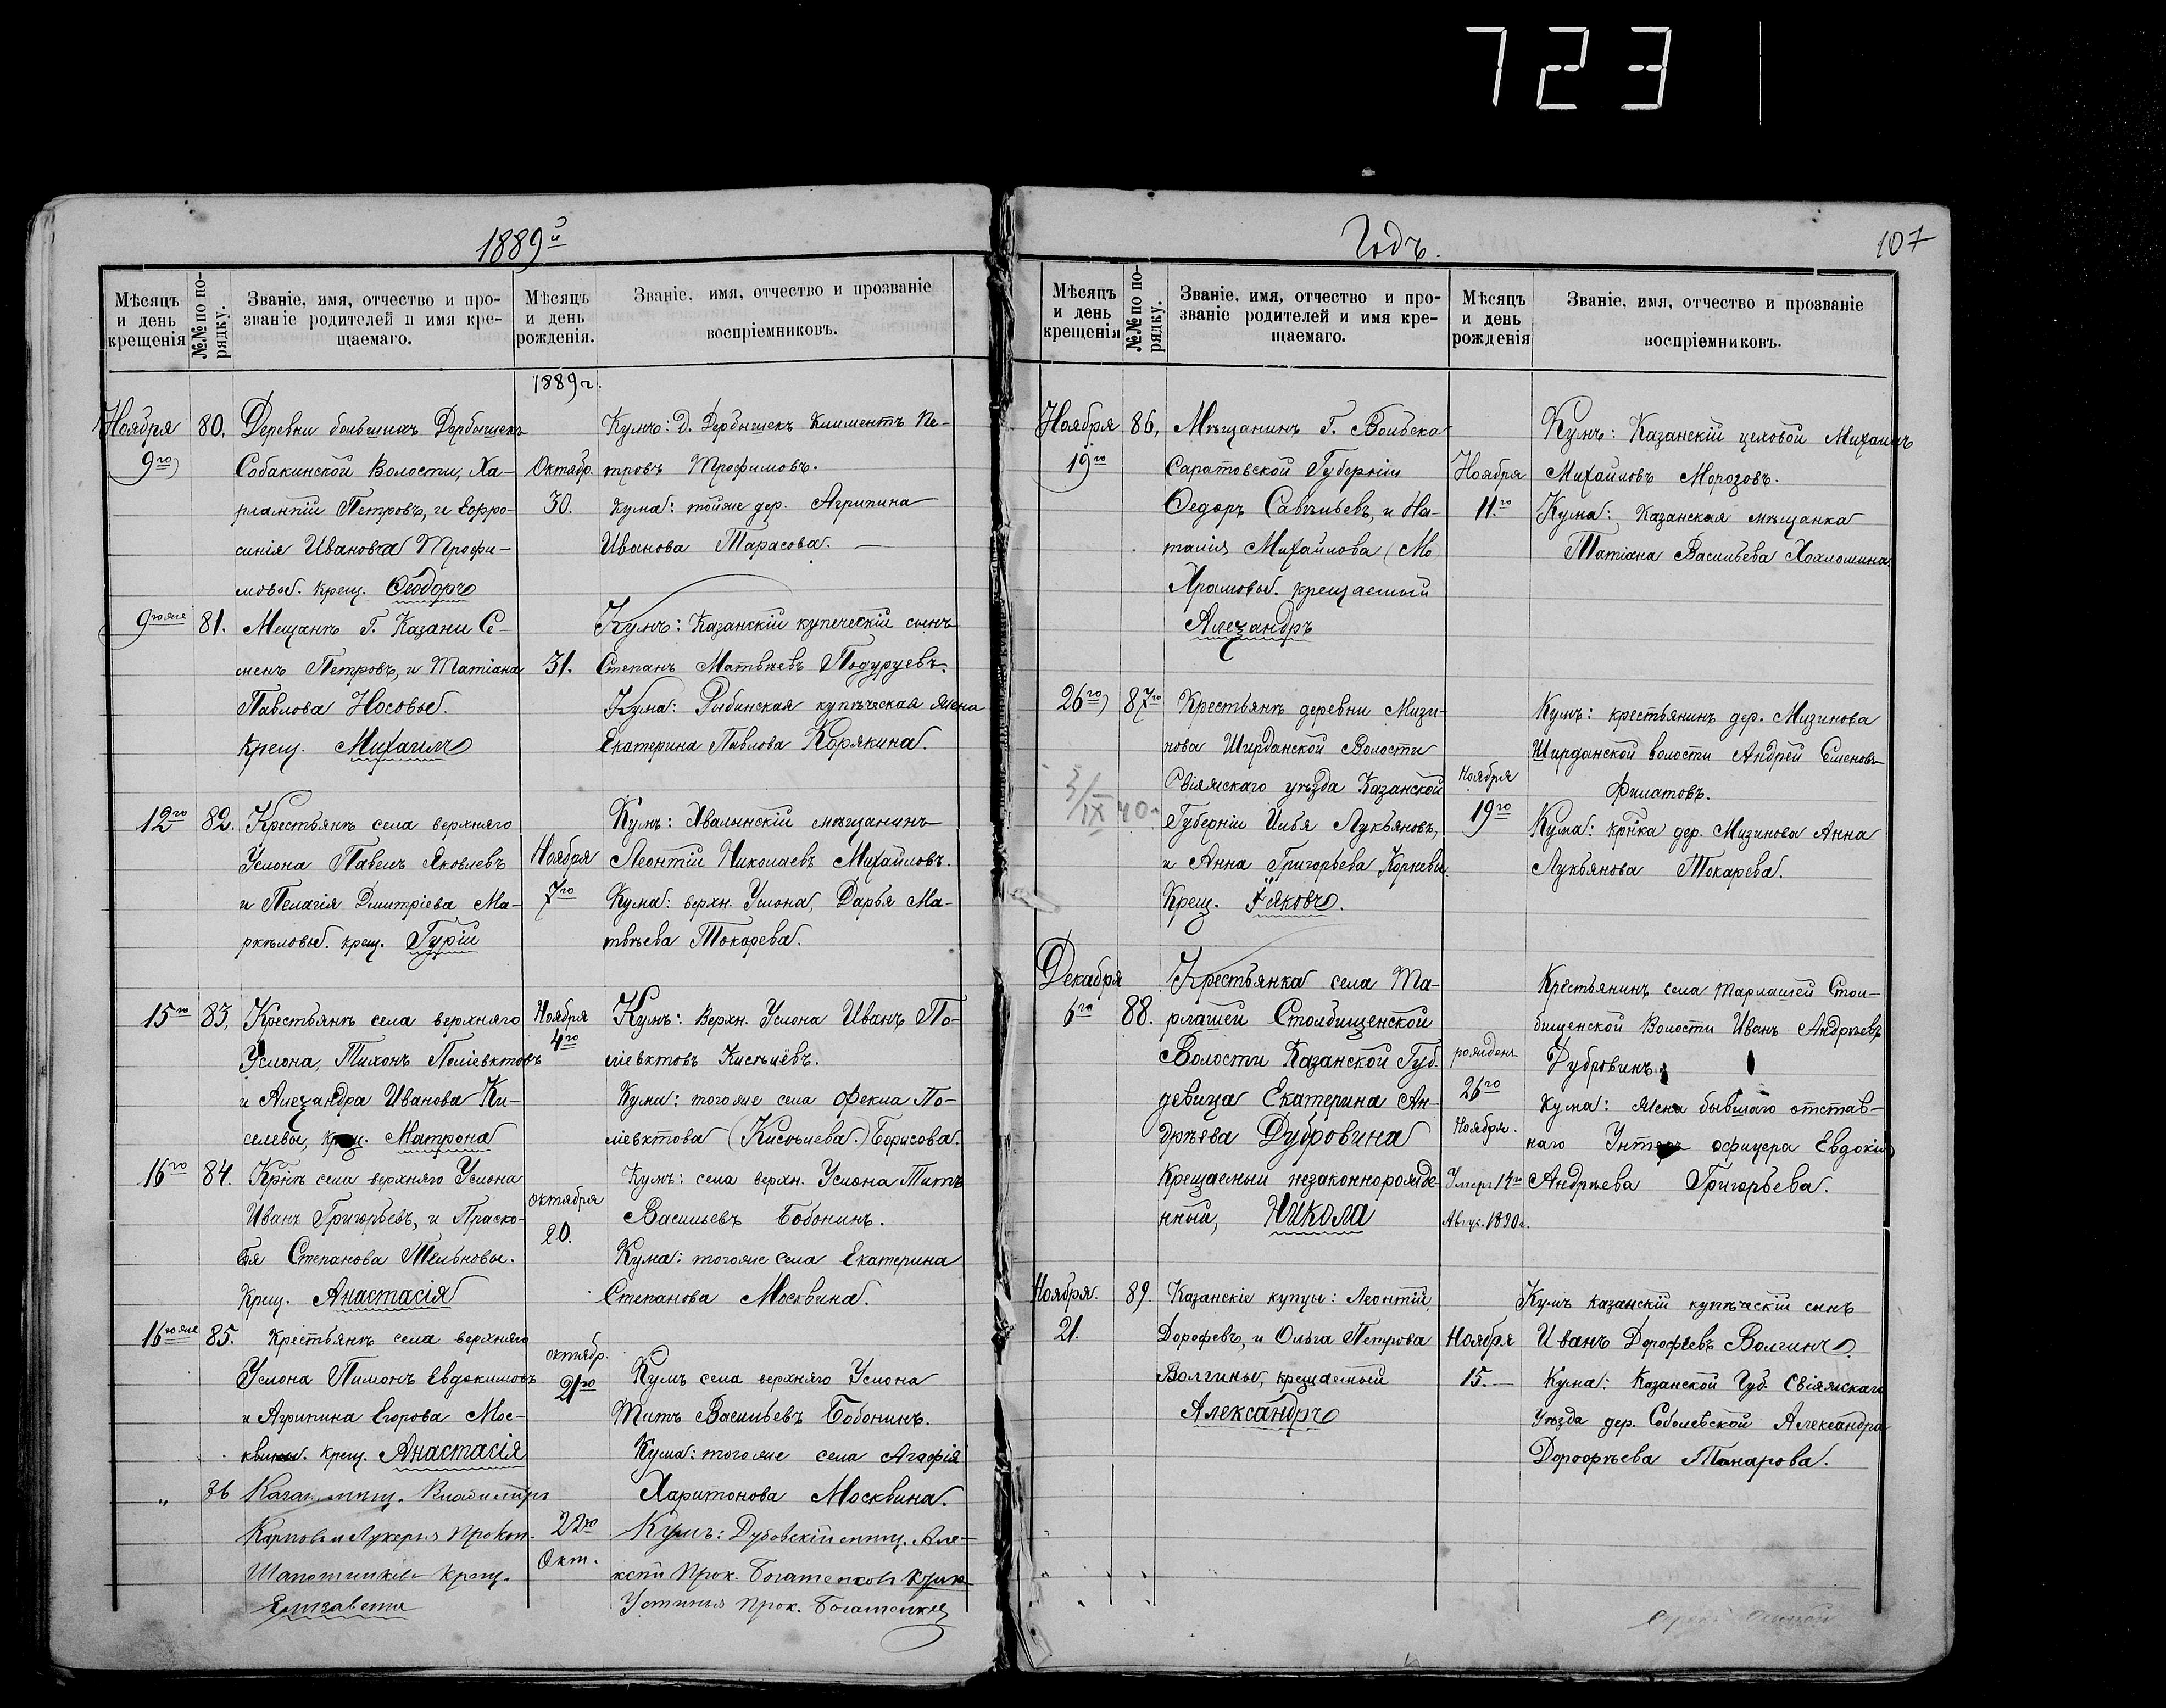 723
1889й
Мѣсяцъ и день крещенія
№№ по порядку.
Званіе, имя, отчество и прозваніе родителей и имя крещаемаго.
Мѣсяцъ и день рожденія.
Званіе, имя, отчество и прозваніе воспріемниковъ.
1889 г.
Ноября 9го
80.
Деревни большихъ Дербышекъ
Собакинской Волости, Ха-
рлампій Петровъ, и Евфро-
синія Иванова Трофи-
мовы. крещ. Ѳеодоръ
Октябр.
30.
Кумъ: д. Дербышекъ Климентъ Пе-
тровъ Трофимовъ.
Кума: тойже дер. Агрипина
Иванова Тарасова.
9гоже
81.
Мещанъ Г. Казани Се-
менъ Петровъ, и Татіана
Павлова Носовы.
крещ. Михаилъ
31.
Кумъ: Казанскій купеческій сынъ
Степанъ Матвѣевъ Подуруевъ.
Кума: Рыбинская купѣческая жена
Екатерина Павлова Корякина.
12го
82.
Крестьянъ села верхняго
Услона Павелъ Яковлевъ
и Пелагія Дмитріева Ма-
ркѣловы. крещ. Гурій
Ноября
7го
Кумъ: Хвалынскій мѣщанинъ
Леонтій Николаевъ Михайловъ.
Кума: верхн. Услона, Дарья Ма-
твѣева Токарева.
15го
83.
Крестьянъ села верхняго
Услона, Тихонъ Поліевктовъ
и Алеѯандра Иванова Ки-
селевы, крещ. Матрона
Ноября
4го
Кумъ: Верхн. Услона Иванъ По-
ліевктовъ Кисѣлёвъ.
Кума: тогоже села Фекла По-
ліевктова (Кисѣлева.) Борисова.
16го
84.
Крѣнъ села верхняго Услона
Иванъ Григорьевъ, и Праско-
вья Степанова Тельновы.
Крещ. Анастасія
октября
20.
Кумъ: села верхн. Услона Титъ
Васильевъ Бобонинъ.
Кума: тогоже села Екатерина
Степанова Москвина.
16гоже
85.
Крестьянъ села верхняго
Услона Пимонъ Евдокимовъ
и Агрипина Егорова Мос-
квины. крещ. Анастасія
октябр.
21го
Кумъ села верхняго Услона
Титъ Васильевъ Бобонинъ.
Кума: тогоже села Агафія
Харитонова Москвина.
"
86
Казан. мщ. Владимиръ
Карповъ и Лукерья Прокоп.
Крещ.
Елизавета
22го
Окт.
Кумъ: Дубовскій мщ. Але-
ксѣй Прок. Богатенковъ Кума
Устинья Прок. Богатенкова
Годъ.
107
Мѣсяцъ и день крещенія
№№ по порядку.
Званіе, имя, отчество и прозваніе родителей и имя крещаемаго.
Мѣсяцъ и день рожденія
Званіе, имя, отчество и прозваніе воспріемниковъ.
Ноября
19го
86,
Мѣщанинъ Г. Вольска
Саратовской Губерніи
Ѳедоръ Савѣльевъ, и На-
талія Михайлова (М
Храмовы. крещаемый
Алеѯандръ
Ноября
11.го
Кумъ: Казанскій цеховой Михаилъ
Михайловъ Морозовъ.
Кума: Казанская мѣщанка
Татіана Васильева Хохломина
26го
87го
Крестьянъ деревни Мизи-
нова Ширданской Волости
Свіяжскаго уѣзда Казанской
Губерніи Илья Лукьяновъ,
и Анна Григорьева Корневы.
Крещ. Іяковъ.
3/IX 40
Ноября
19го
Кумъ: крестьянинъ дер. Мизинова
Ширданской волости Андрей Семеновъ
Филатовъ.
Кума: крѣнка дер. Мизинова Анна
Лукьянова Токарева.
Декабря
6го
88.
Крестьянка села Та-
рлашей Столбищенской
Волости Казанской Губ.
девица Екатерина Ан-
дрѣева Дубровина
Крещаемый незаконнорожде-
нный, Никола
рожден
26го
Ноября.
Умеръ 14го
Авгус. 1890 г.
Крестьянинъ села Тарлашей Стол-
бищенской Волости Иванъ Андрѣевъ
Дубровинъ
Кума: жена бывшаго отстав-
наго Унтеръ офицера Евдокия
Андрѣева Григорьева.
Ноября.
21.
89.
Казанскіе купцы: Леонтій
Дорофевъ, и Ольга Петрова
Волгины, крещаемый
Александръ
Ноября
15.
Кумъ казанскій купѣчаскій сынъ
Иванъ Дорофѣевъ Волгинъ.
Кума: Казанской Губ. Свіяжскаго
Уѣзда дер. Соболевской Александра
Дорофѣева Танарова.